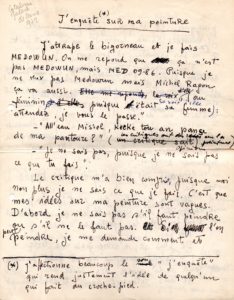 (*)
J'enquête sur ma peinture
J'attrape le bigorneau et je fais
MEDOWUN. On me répond que ça n'est
pas MEDOWUN, mais MED 09.86. Puisque je
ne veux pas Medowun mais Michel Ragon,
ça va aussi.
puisque c'était sa femme);
attendez, je vous le passe."
- All'eau Mistol,
de ma peinture ? (un critique sait, puisque)
- Je ne sais pas, puisque je ne sais pas
ce que tu fais.
Le critique m'a bien compris puisque moi
non plus je ne sais ce que je fais. C'est que
mes idées sur ma peinture sont vagues.
D'abord je ne sais pas s'il faut peindre
ou s'il ne le faut pas.
peindre, je me demande comment et
(*) j'affectionne beaucoup le "j'enquête"
qui rend justement l'idée de quelqu'un
qui fait du croche-pied.